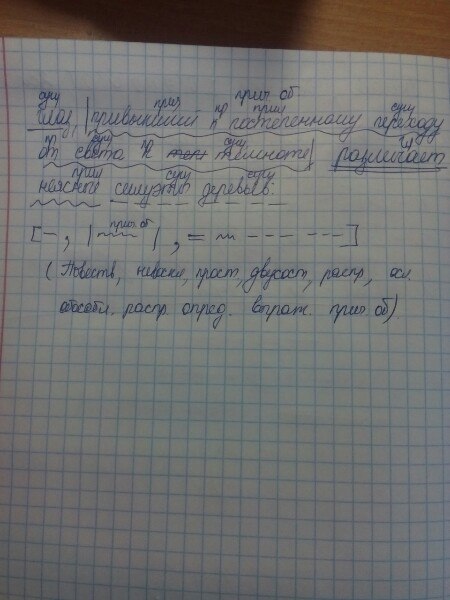 сущ прич прич. об пр прил сущ
Глаз, |привыкший к постепенному переходу
пр сущ пр сущ гл
от света к темноте| различает
прил сущ сущ
неясные силуэты деревьев.
[-, |прич. об|, = ]
(Повеств, невоскл, прост, двусост, распр, осл.
обособл. распр опред. выраж. прич. об)